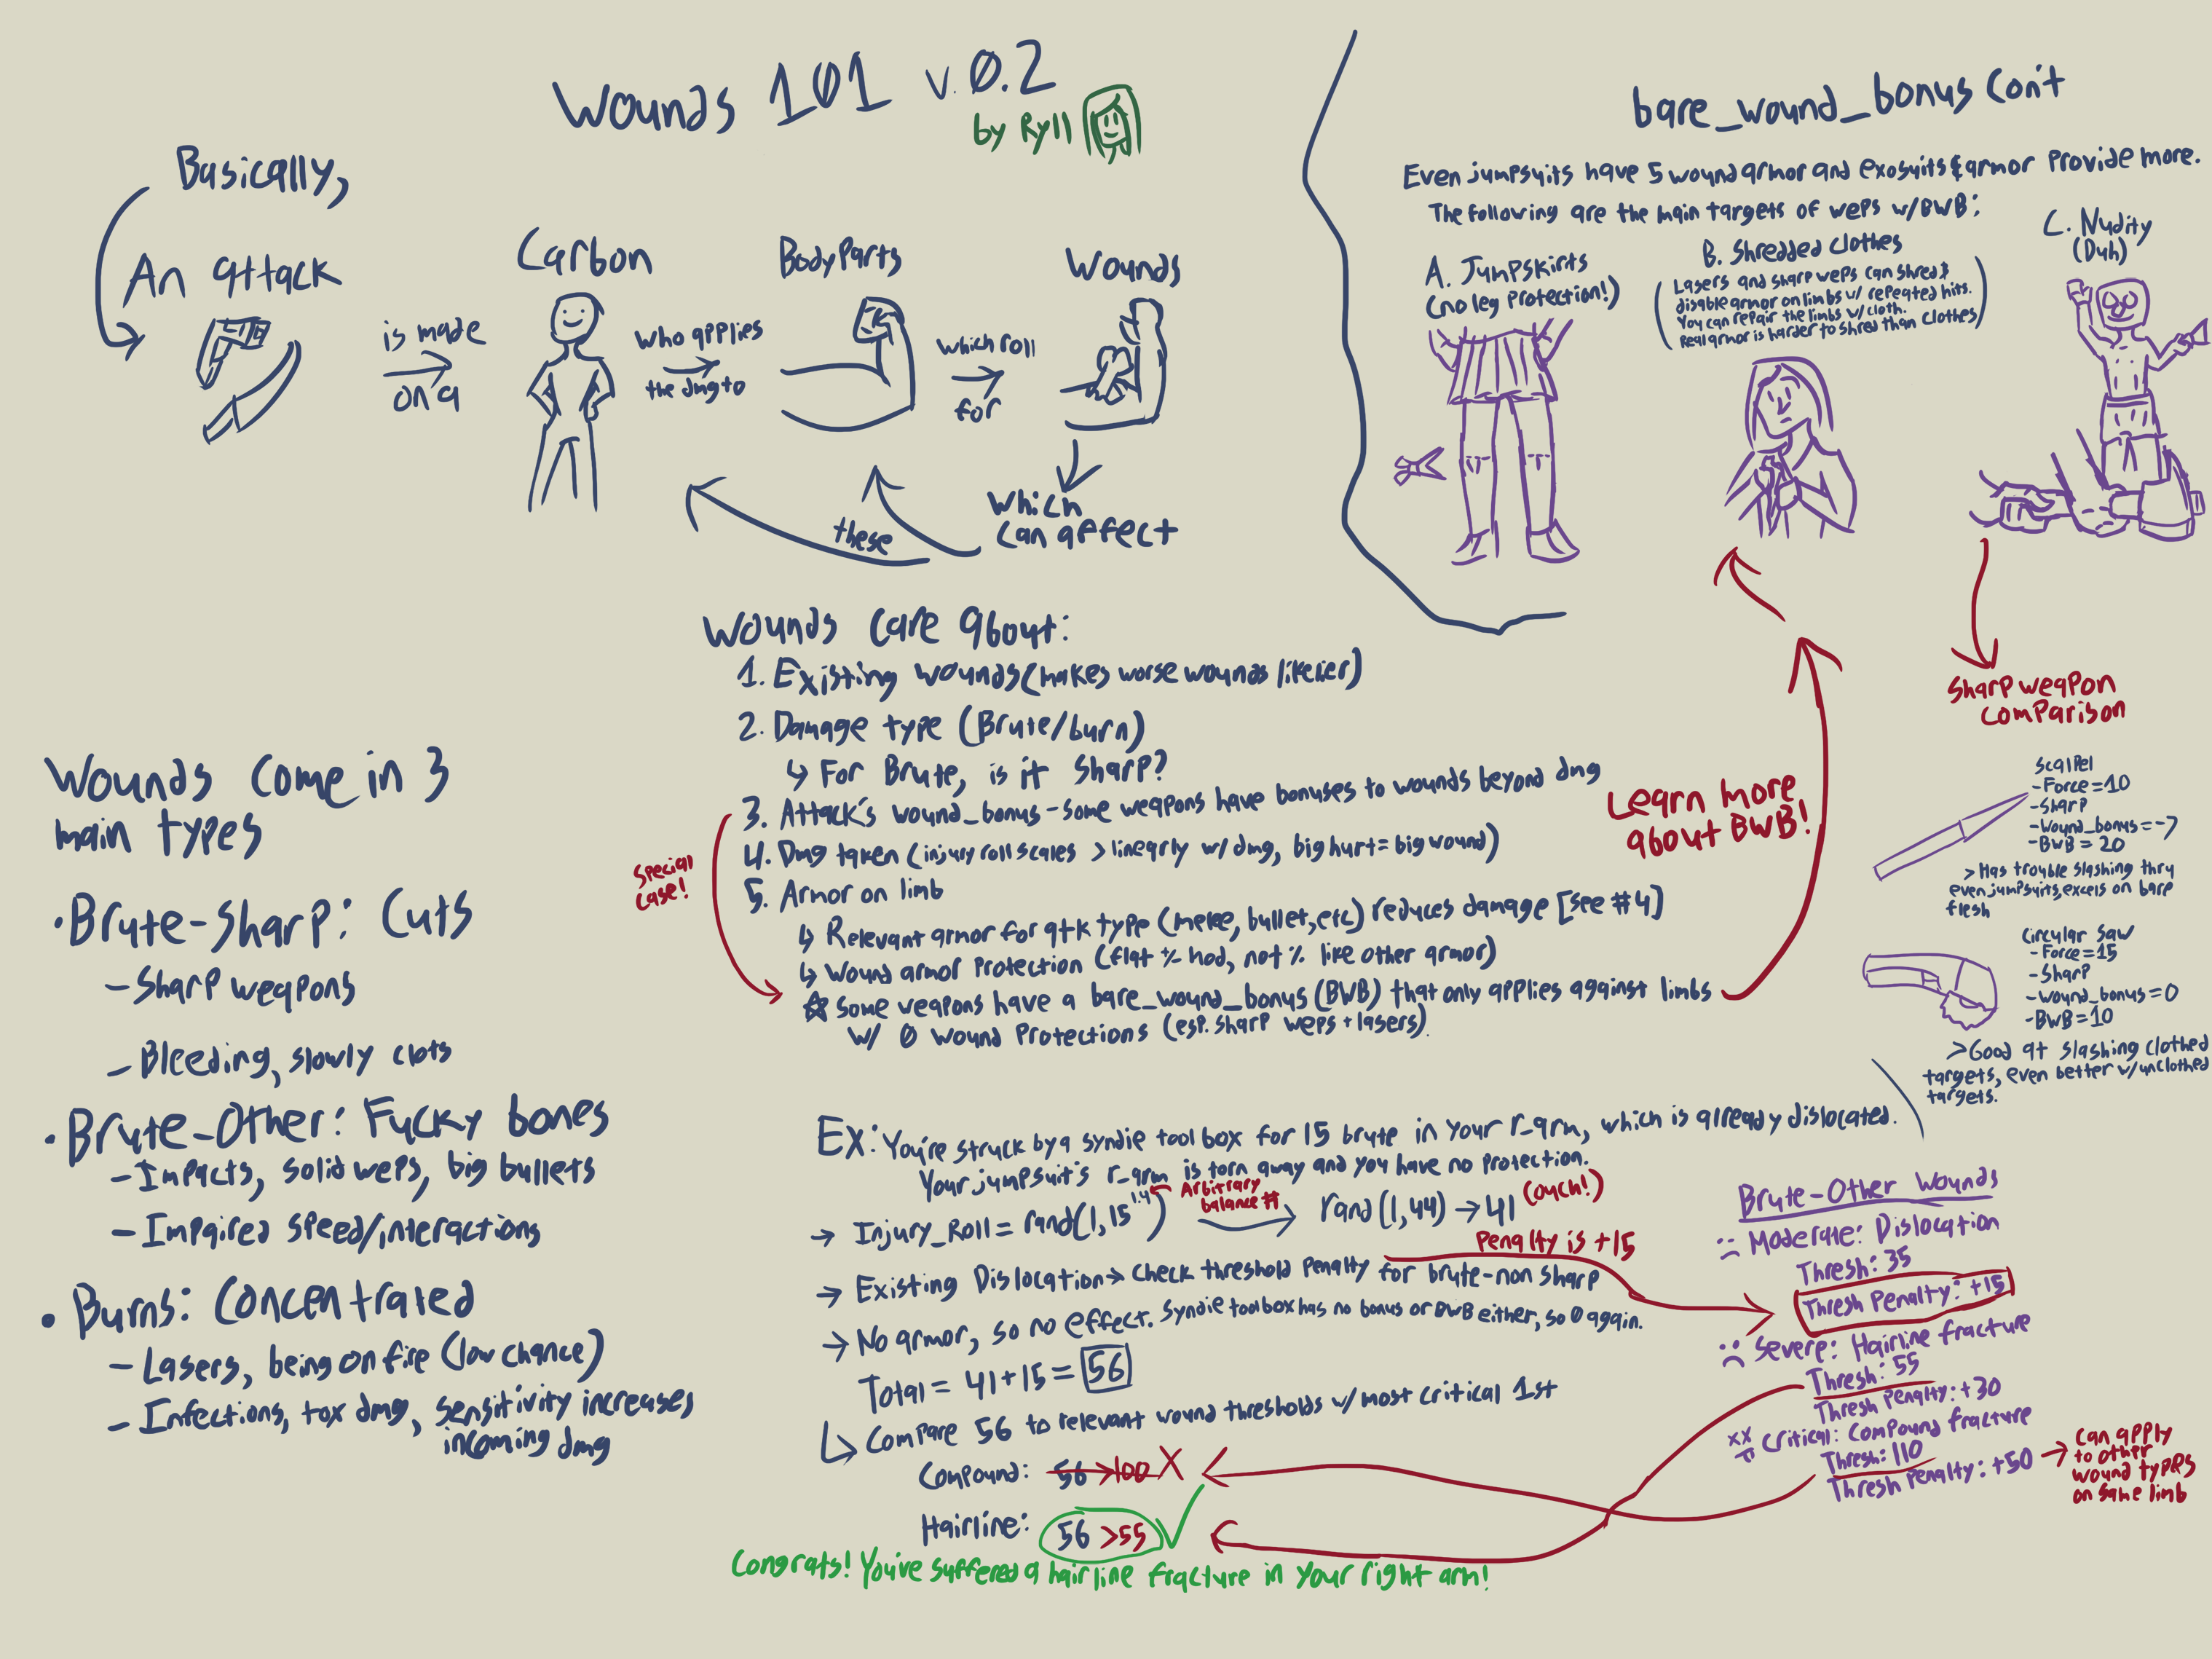 Wounds 101 v.0.2
by Ryll
Basically,
An attack
is made
on a
Carbon
who applies
the dmg to
BodyParts
which roll
for
Wounds
which
can affect
these
Wounds come in 3
main types
• Brute-Sharp: Cuts
- Sharp weapons
- Bleeding, slowly clots
• Brute-Other: Fucky bones
- Impacts, solid weps, big bullets
- Impaired speed/interactions
• Burns: Concentrated
- Lasers, being on fire (low chance)
- Infections, tox dmg, sensitivity increases
incoming dmg
Wounds care about:
1. Existing wounds (makes worse wounds likelier)
2. Damage type (Brute/burn)
↳ For Brute, is it sharp?
3. Attack's wound_bonus - some weapons have bonuses to wounds beyond dmg
4. Dmg taken (injury roll scales > linearly w/ dmg, big hurt = big wound)
5. Armor on limb
↳ Relevant armor for atk type (melee, bullet, etc) reduces damage [see #4]
↳ Wound armor protection (flat +/- mod, not % like other armor)
☆ some weapons have a bare_wound_bonus (BWB) that only applies against limbs
w/ 0 wound protections (esp. sharp weps + lasers).
Special
case!
Learn more
about BWB!
Ex: You're struck by a syndie toolbox for 15 brute in your r_arm, which is already dislocated.
Your jumpsuit's r_arm is torn away and you have no protection.
→ Injury_Roll = rand(1, 15^1.4) → rand(1,44) → 41 (ouch!)
Arbitrary
balance #
Penalty is +15
→ Existing Dislocation → check threshold penalty for brute-non sharp
→ No armor, so no effect. Syndie toolbox has no bonus or BWB either, so 0 again.
Total = 41+15 = 56
↳ Compare 56 to relevant wound thresholds w/ most critical 1st
Compound: 56 > 100 X
Hairline: 56 > 55 ✓
Congrats! You've suffered a hairline fracture in your right arm!
bare_wound_bonus con't
Even jumpsuits have 5 wound armor and exosuits & armor provide more.
The following are the main targets of weps w/ BWB:
A. Jumpskirts
(no leg protection!)
B. Shredded clothes
(Lasers and sharp weps can shred &
disable armor on limbs w/ repeated hits.
You can repair the limbs w/ cloth.
Real armor is harder to shred than clothes)
C. Nudity
(Duh)
Sharp weapon
comparison
Scalpel
- Force = 10
- Sharp
- Wound_bonus = -7
- BWB = 20
> Has trouble slashing thru
even jumpsuits, excels on bare
flesh
Circular saw
- Force = 15
- Sharp
- Wound_bonus = 0
- BWB = 10
> Good at slashing clothed
targets, even better w/ unclothed
targets.
Brute-Other Wounds
Moderate: Dislocation
Thresh: 35
Thresh Penalty: +15
Severe: Hairline fracture
Thresh: 55
Thresh Penalty: +30
Critical: Compound fracture
Thresh: 110
Thresh Penalty: +50
can apply
to other
wound types
on same limb